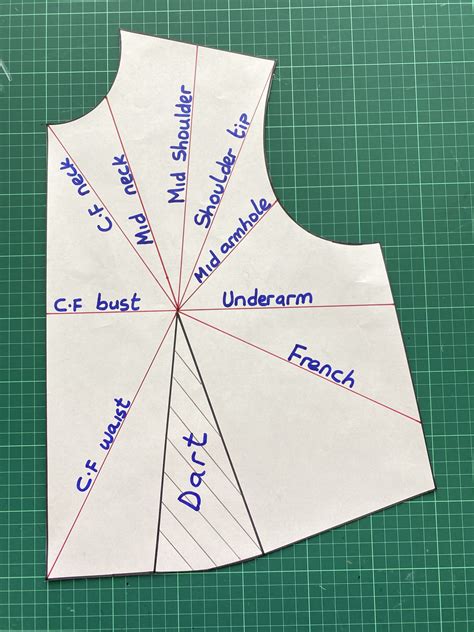 C.F neck
Mid neck
Mid shoulder
Shoulder tip
Mid armhole
C.F bust
Underarm
French
C.F waist
Dart